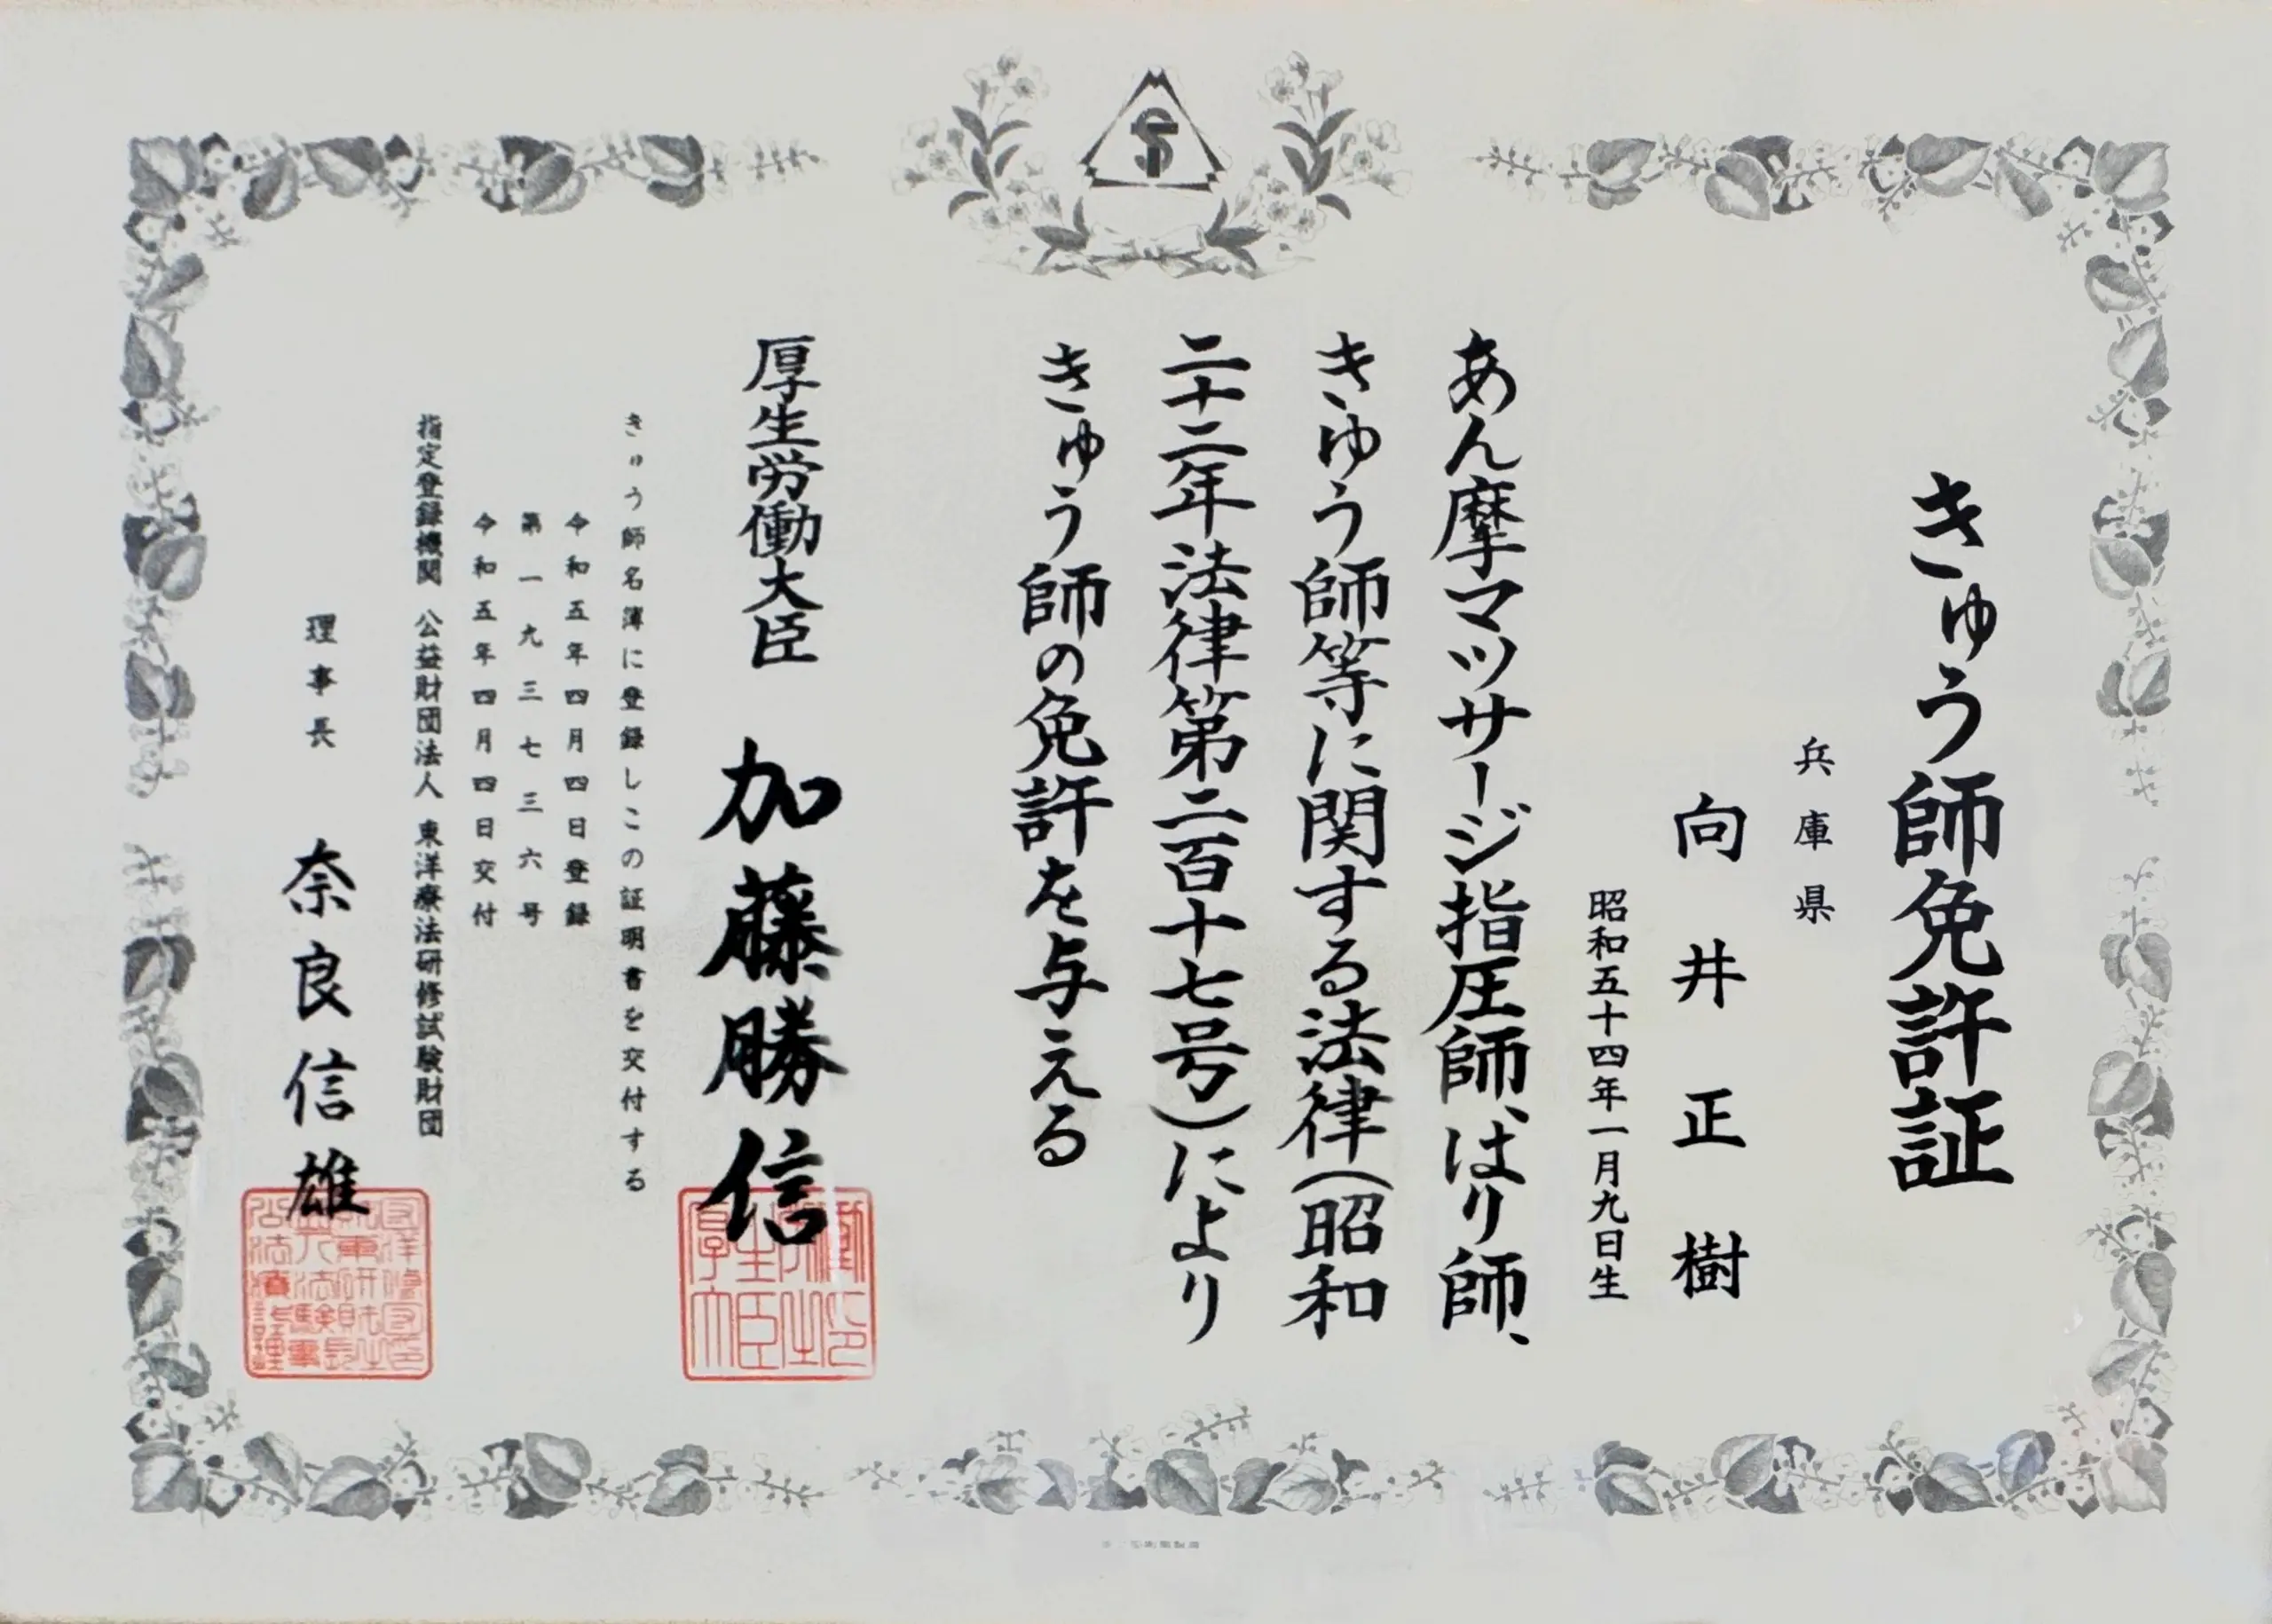 きゅう師免許証
兵庫県
向井正樹
昭和五十四年一月九日生
あん摩マツサージ指圧師、はり師、
きゆう師等に関する法律(昭和
二十二年法律第二百十七号)により
きゅう師の免許を与える
厚生労働大臣 加藤勝信
きゅう師名簿に登録しこの証明書を交付する
令和五年四月四日登録
第一九三七三六号
令和五年四月四日交付
指定登録機関 公益財団法人 東洋療法研修試験財団
理事長 奈良信雄